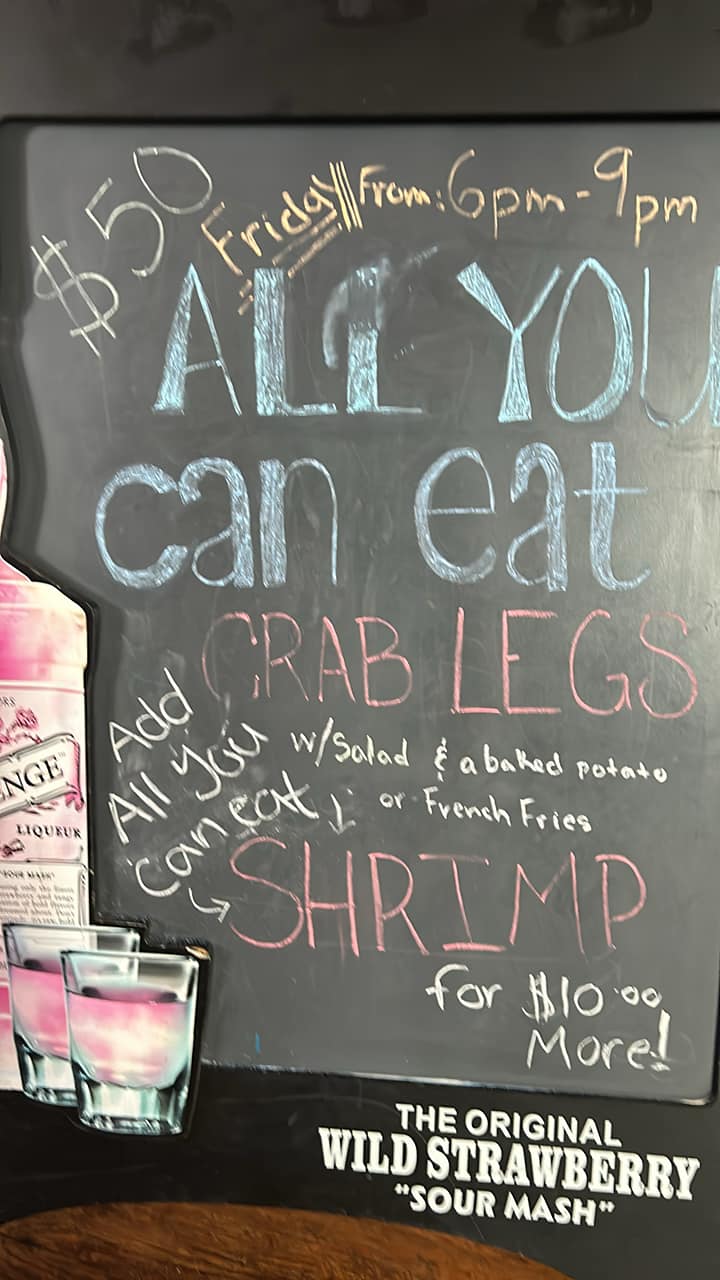 $50
Friday From: 6pm-9pm
ALL YOU
can eat
CRAB LEGS
w/Salad & a baked potato
or French Fries
Add
All you
can eat
SHRIMP
for $10.00
More!
NGE
LIQUEUR
"SOUR MASH"
THE ORIGINAL
WILD STRAWBERRY
"SOUR MASH"